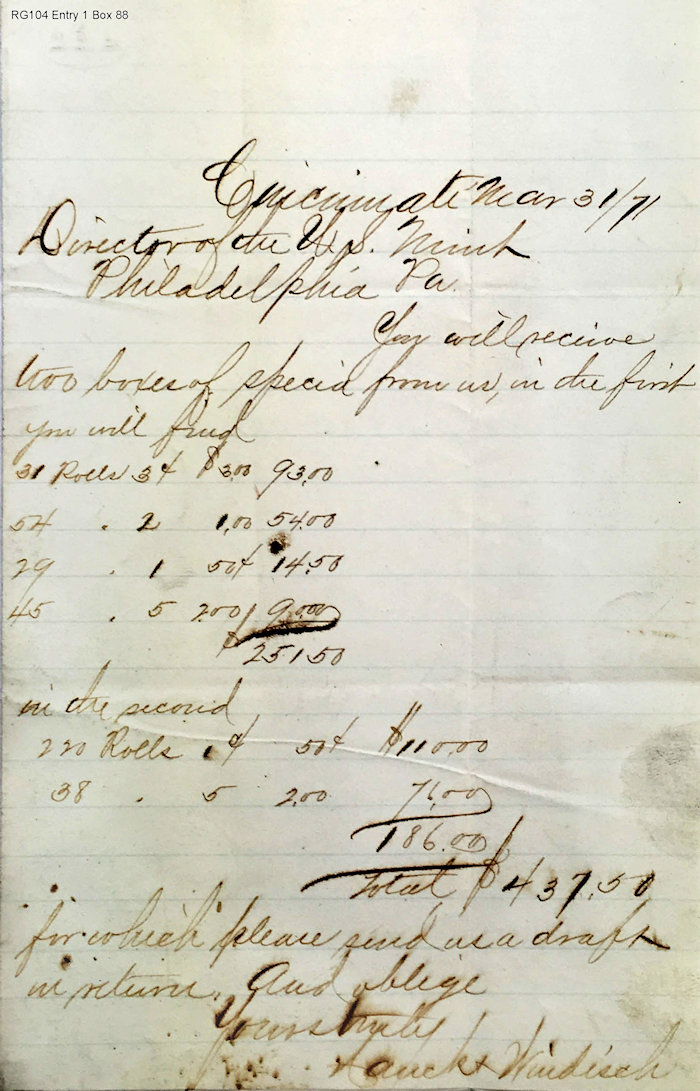 RG104 Entry 1 Box 88
Cincinnati Mar 31/71
Director of the U.S. Mint
Philadelphia Pa.
You will receive
two boxes of specia from us, in the first
you will find
31 Rolls 3¢ $3.00 93.00
54 . 2 1.00 54.00
29 . 1 50¢ 14.50
45 . 5 2.00 90.00
$251.50
in the second
220 Rolls 1¢ 50¢ $110.00
38 . 5 2.00 76.00
186.00
Total $437.50
for which please send us a draft
in return. And oblige
Yours truly
Hauck & Windisch